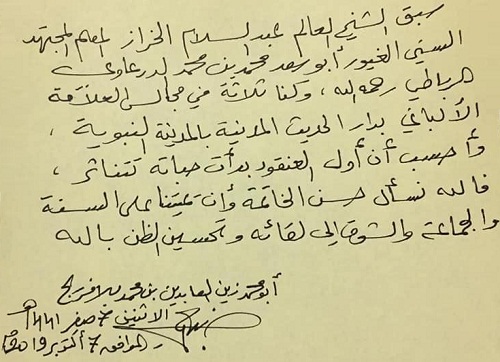 سبق الشيخ العالم عبد السلام الخراز المعلم المجتهد
السني الغيور أبو سعد محمد بن محمد الدرعاوي
الرباطي رحمه الله، وكنا ثلاثة في مجالس العلامة
الألباني بدار الحديث المدنية بالمدينة النبوية،
وأحسب أن أول العنقود بدأت حباته تتناثر،
فالله نسأل حسن الخاتمة وأن يميتنا على السنة
والجماعة والشوق إلى لقائه وتحسين الظن بالله
أبو محمد زين العابدين بن محمد بلافريج
الاثنين 7 صفر 1441هـ
الموافق 7 أكتوبر 2019